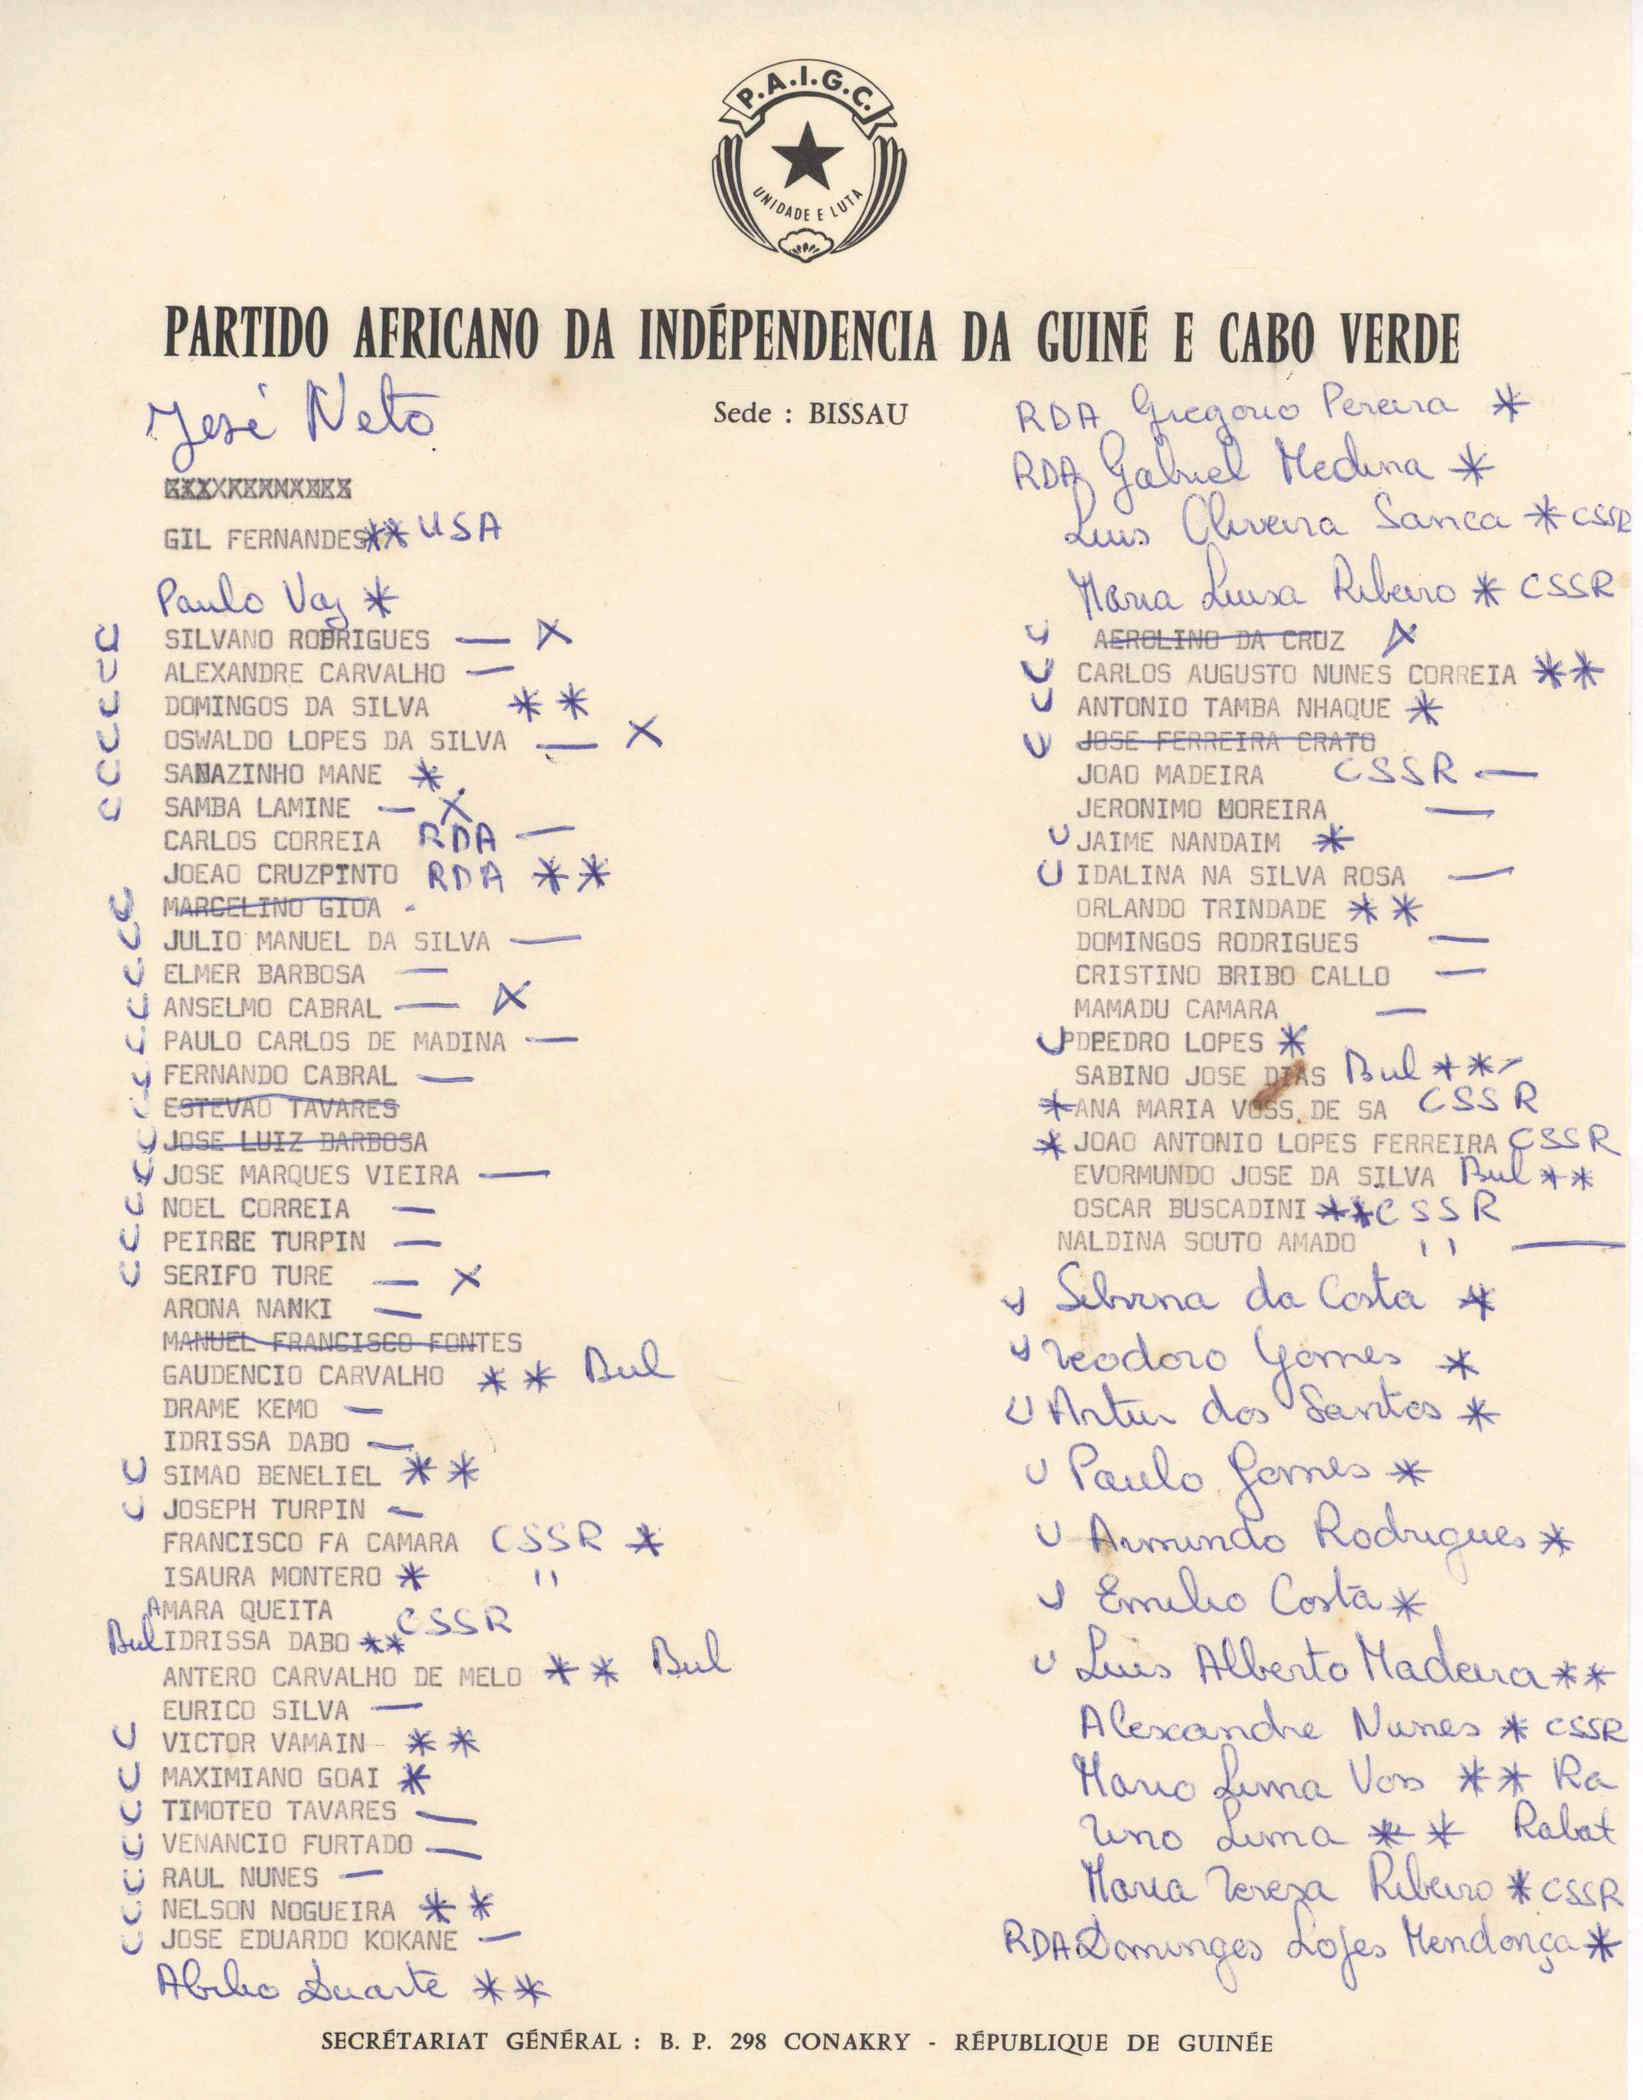 P.A.I.G.C.
UNIDADE E LUTA
PARTIDO AFRICANO DA INDÉPENDENCIA DA GUINÉ E CABO VERDE
Sede : BISSAU
José Neto
GIL FERNANDES ** USA
Paulo Vaz *
U SILVANO RODRIGUES — X
U ALEXANDRE CARVALHO —
U DOMINGOS DA SILVA * *
U OSWALDO LOPES DA SILVA — X
U SANAZINHO MANE *
U SAMBA LAMINE — X
CARLOS CORREIA RDA —
JOEAO CRUZPINTO RDA * *
U MARCELINO GIOA -
U JULIO MANUEL DA SILVA —
U ELMER BARBOSA —
U ANSELMO CABRAL — X
U PAULO CARLOS DE MADINA —
U FERNANDO CABRAL —
U ESTEVAO TAVARES
U JOSE LUIZ BARBOSA
U JOSE MARQUES VIEIRA —
U NOEL CORREIA —
U PEIRRE TURPIN —
U SERIFO TURE — X
ARONA NANKI —
MANUEL FRANCISCO FONTES
GAUDENCIO CARVALHO * * Bul
DRAME KEMO —
IDRISSA DABO —
U SIMAO BENELIEL * *
U JOSEPH TURPIN —
FRANCISCO FA CAMARA CSSR *
ISAURA MONTERO * "
AMARA QUEITA CSSR
Bul IDRISSA DABO **
ANTERO CARVALHO DE MELO * * Bul
EURICO SILVA —
U VICTOR VAMAIN * *
U MAXIMIANO GOAI *
U TIMOTEO TAVARES —
U VENANCIO FURTADO —
U RAUL NUNES —
U NELSON NOGUEIRA * *
U JOSE EDUARDO KOKANE —
Abilio Duarte * *
RDA Gregorio Pereira *
RDA Gabriel Medina *
Luis Oliveira Sanca * CSSR
Maria Luisa Ribeiro * CSSR
U AEROLINO DA CRUZ X
U CARLOS AUGUSTO NUNES CORREIA **
U ANTONIO TAMBA NHAQUE *
U JOSE FERREIRA CRATO
JOAO MADEIRA CSSR —
JERONIMO MOREIRA —
U JAIME NANDAIM *
U IDALINA NA SILVA ROSA —
ORLANDO TRINDADE * *
DOMINGOS RODRIGUES —
CRISTINO BRIBO CALLO —
MAMADU CAMARA —
U PDPEDRO LOPES *
SABINO JOSE DIAS Bul **
* ANA MARIA VOSS DE SA CSSR
* JOAO ANTONIO LOPES FERREIRA CSSR
EVORMUNDO JOSE DA SILVA Bul **
OSCAR BUSCADINI ** CSSR
NALDINA SOUTO AMADO " —
U Silvina da Costa *
U Teodoro Gomes *
U Artur dos Santos *
U Paulo Gomes *
U Armindo Rodrigues *
U Emilio Costa *
U Luis Alberto Madeira **
Alexandre Nunes * CSSR
Mario Lima Voss ** Ra
Tino Lima * * Rabat
Maria Tereza Ribeiro * CSSR
RDA Domingos Lopes Mendonça *
SECRÉTARIAT GÉNÉRAL : B. P. 298 CONAKRY - RÉPUBLIQUE DE GUINÉE